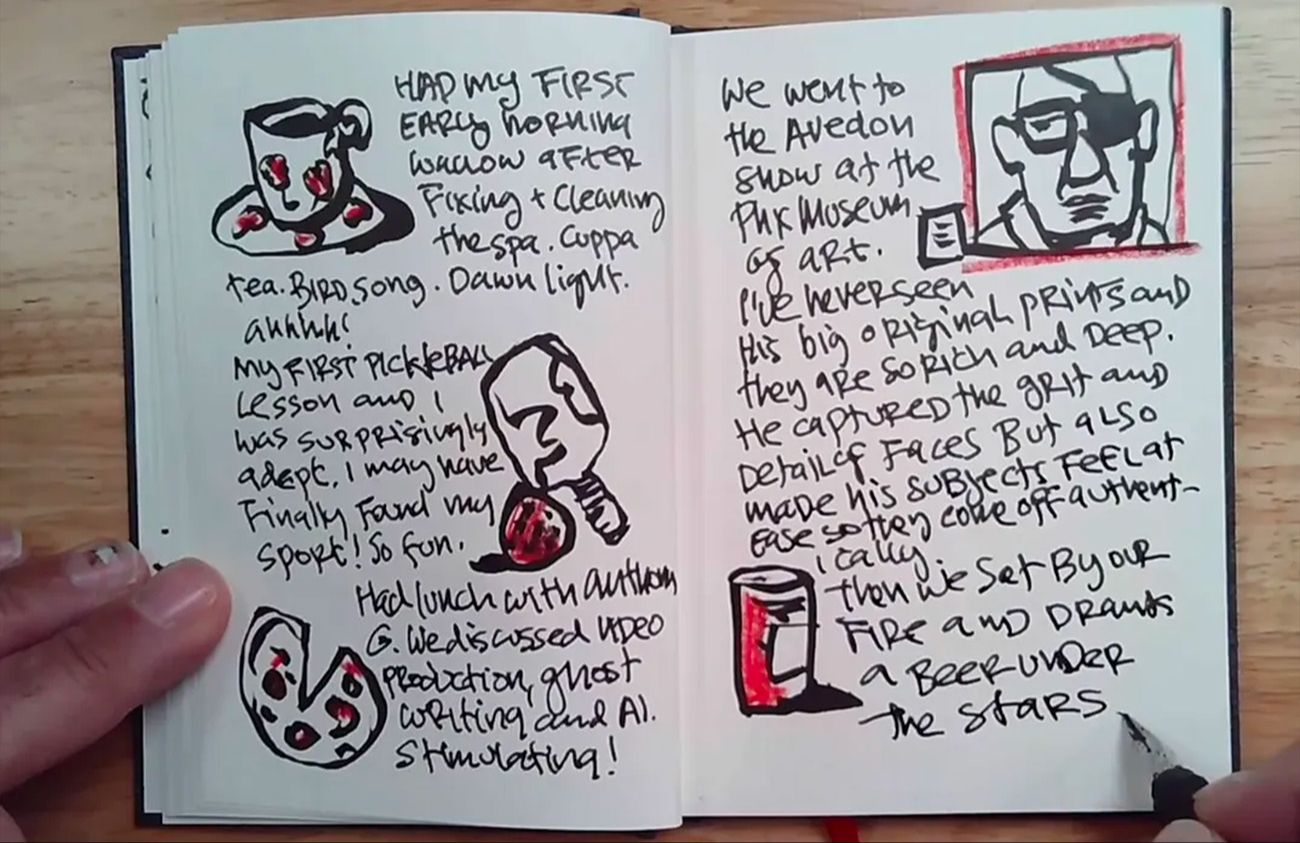 HAD MY FIRST
EARLY MORNING
WALLOW AFTER
FIXING + CLEANING
THE SPA. CUPPA
TEA. BIRD SONG. DAWN LIGHT.
AHHHH!
MY FIRST PICKLEBALL
LESSON AND I
WAS SURPRISINGLY
ADEPT. I MAY HAVE
FINALLY FOUND MY
SPORT! SO FUN.
HAD LUNCH WITH ANTHONY
G. WE DISCUSSED VIDEO
PRODUCTION, GHOST
WRITING AND AI.
STIMULATING!
WE WENT TO
THE AVEDON
SHOW AT THE
PHX MUSEUM
OF ART.
I'VE NEVER SEEN
HIS BIG ORIGINAL PRINTS AND
THEY ARE SO RICH AND DEEP.
HE CAPTURED THE GRIT AND
DETAIL OF FACES BUT ALSO
MADE HIS SUBJECTS FEEL AT
EASE SO THEY COME OFF AUTHENT-
ICALLY
THEN WE SAT BY OUR
FIRE AND DRANK
A BEER UNDER
THE STARS